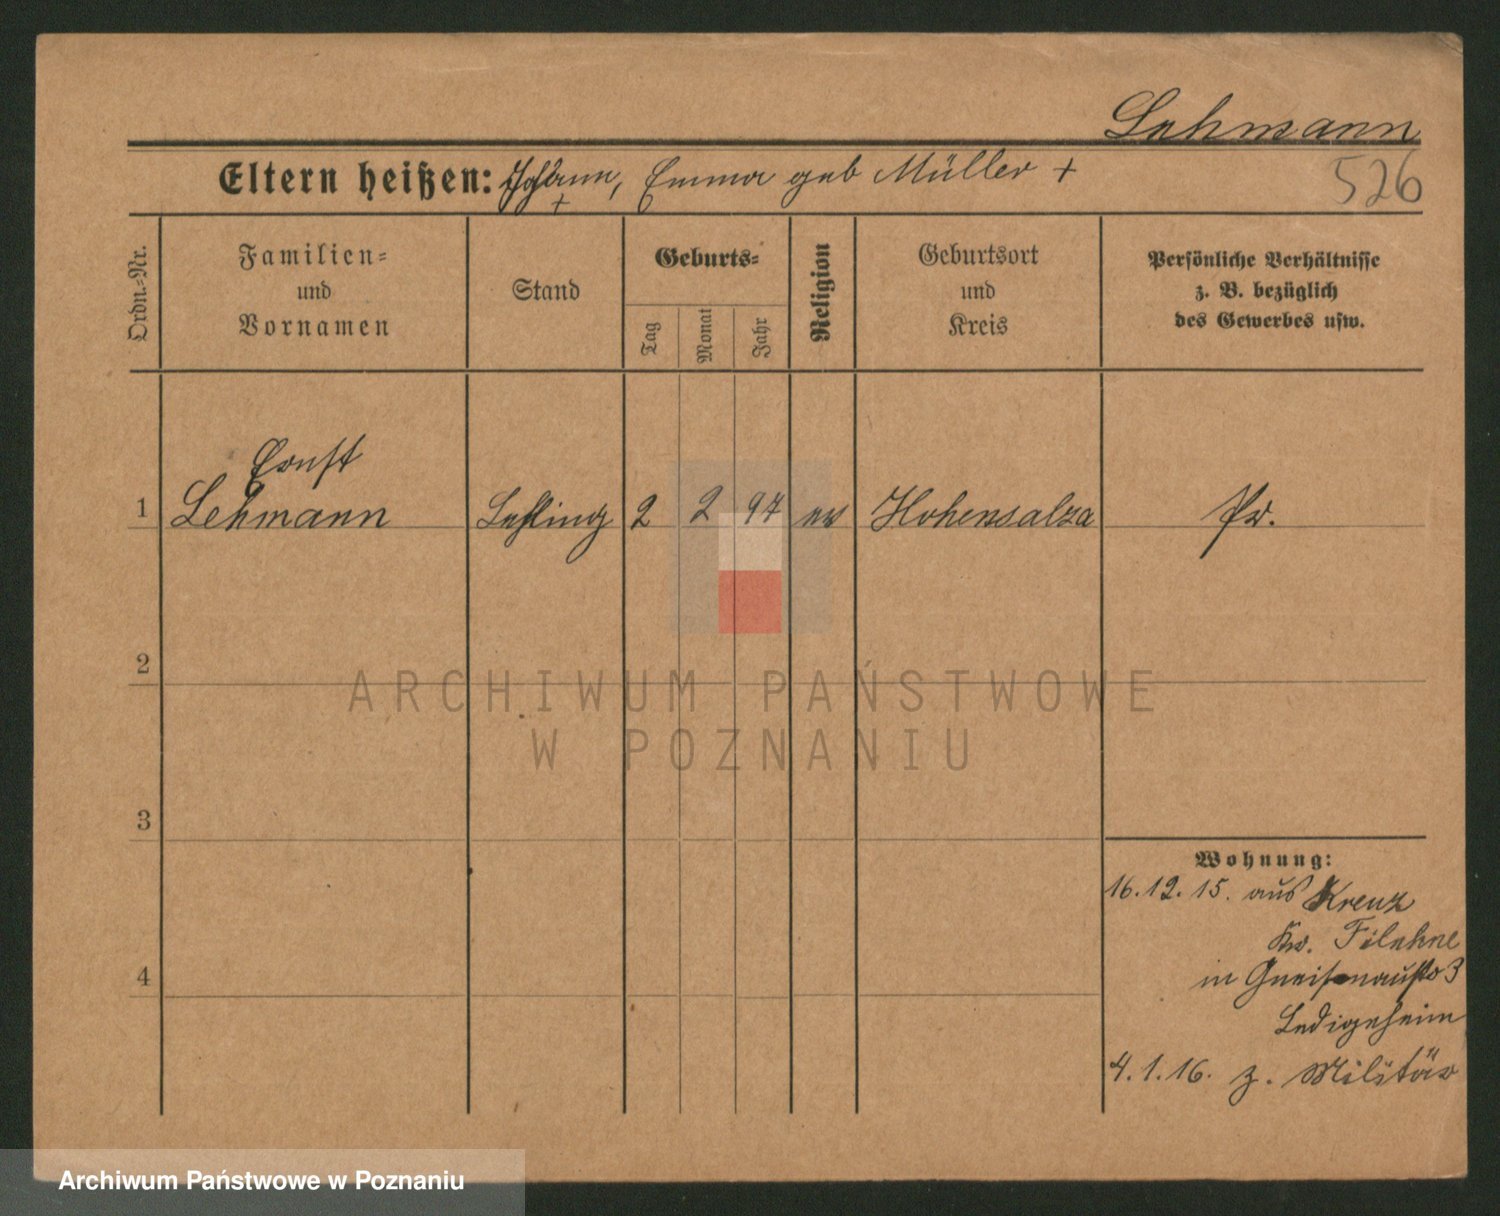 Lehmann
Eltern heißen: Johann, Emma geb Müller +
+
526
Ordn.-Nr.
Familien-
und
Vornamen
Stand
Geburts-
Tag
Monat
Jahr
Religion
Geburtsort
und
Kreis
Persönliche Verhältnisse
z. B. bezüglich
des Gewerbes usw.
Ernst
1 Lehmann Lehling 2 2 97 ev Hohensalza Pr.
2
3
4
Wohnung:
16.12.15. aus Kreuz
Kr. Filehne
in Gneisenaustr 3
Ledigeheim
4.1.16. z. Militär
ARCHIWUM PAŃSTWOWE
W POZNANIU
Archiwum Państwowe w Poznaniu